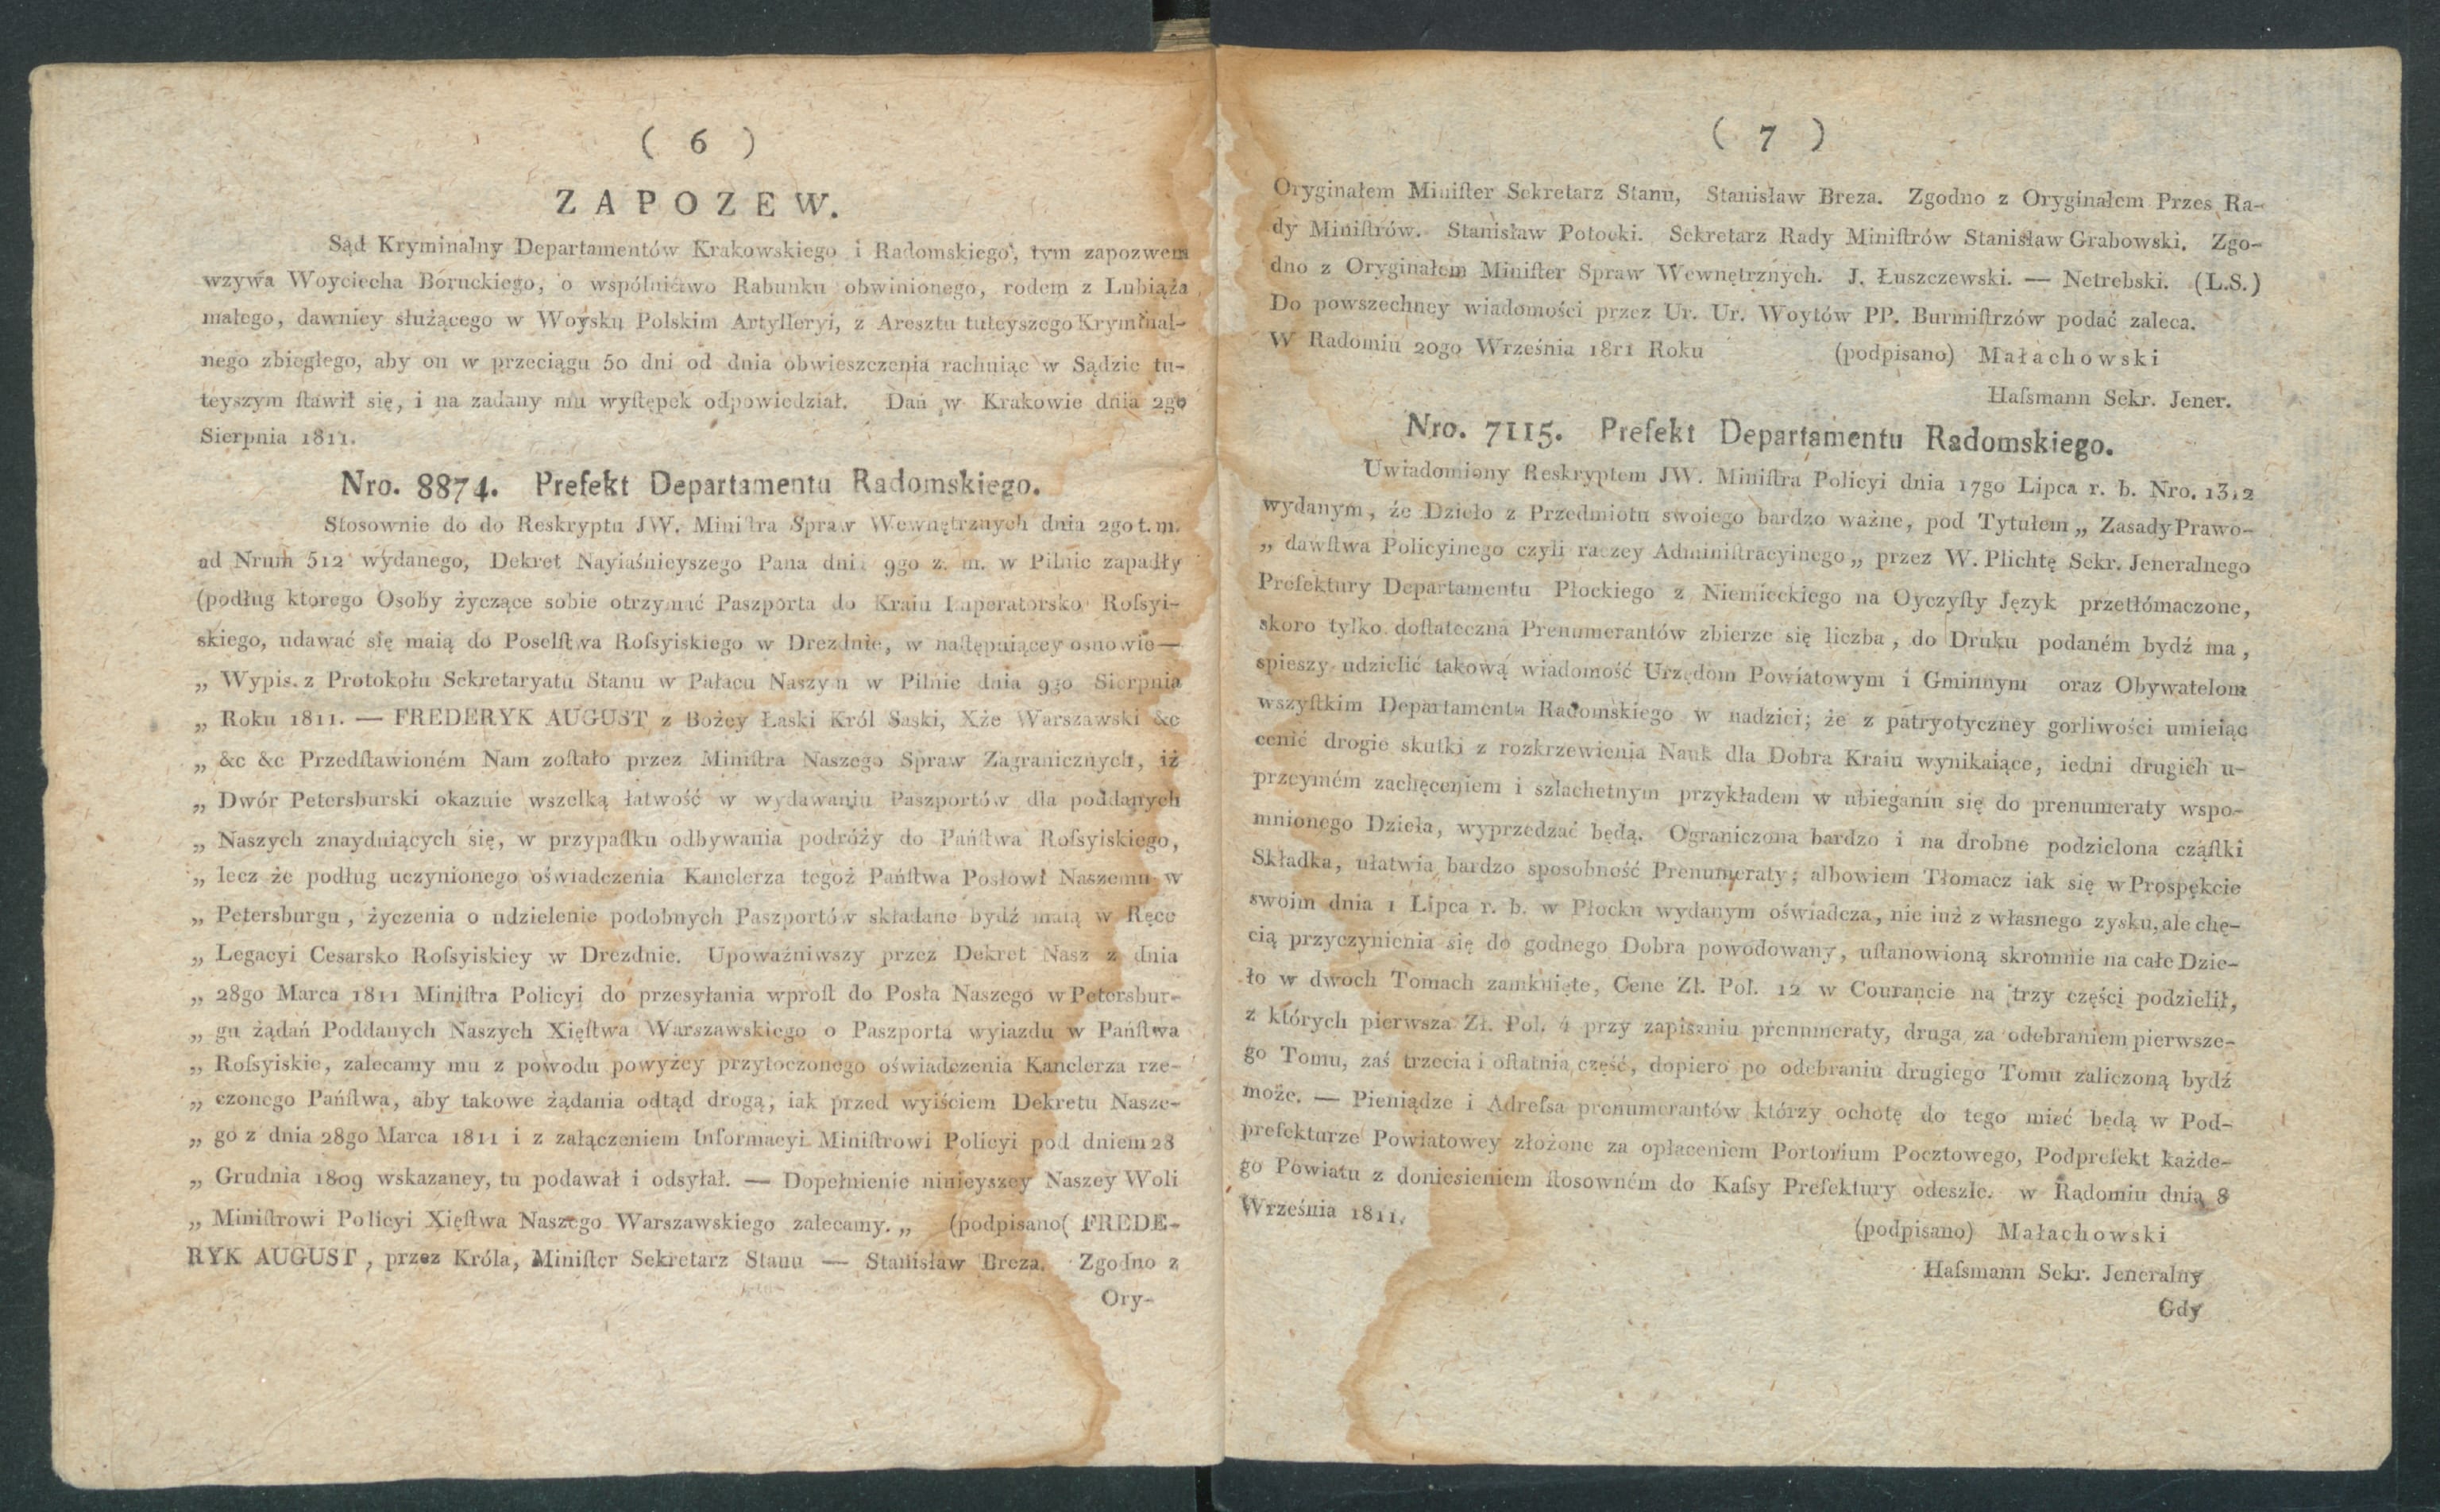 ( 6 )
ZAPOZEW.
Sąd Kryminalny Departamentów Krakowskiego i Radomskiego, tym zapozwem
wzywa Woyciecha Boruckiego, o wspólnictwo Rabunku obwinionego, rodem z Lubiąża
małego, dawniey służącego w Woysku Polskim Artylleryi, z Aresztu tuteyszego Kryminal-
nego zbiegłego, aby on w przeciągu 50 dni od dnia obwieszczenia rachuiąc w Sądzie tu-
teyszym ſtawił się, i na zadany mu wyſtępek odpowiedział. Dan w Krakowie dnia 2go
Sierpnia 1811.
Nro. 8874. Prefekt Departamentu Radomskiego.
Stosownie do do Reskryptu JW. Miniſtra Spraw Wewnętrznych dnia 2go t. m.
ad Nrum 512 wydanego, Dekret Nayiaśnieyszego Pana dnia 9go z. m. w Pilnic zapadły
(podług ktorego Osoby życzące sobie otrzymać Paszporta do Kraiu Imperatorsko Roſsyi-
skiego, udawać się maią do Poselſtwa Roſsyiskiego w Drezdnie, w naſtępuiącey osnowie—
„ Wypis. z Protokołu Sekretaryatu Stanu w Pałacu Naszym w Pilnic dnia 9go Sierpnia
„ Roku 1811. — FREDERYK AUGUST z Bożey Łaski Król Saski, Xże Warszawski &c
„ &c &c Przedſtawioném Nam zoſtało przez Miniſtra Naszego Spraw Zagranicznych, iż
„ Dwór Petersburski okazuie wszelką łatwość w wydawaniu Paszportów dla poddanych
„ Naszych znayduiących się, w przypadku odbywania podróży do Pańſtwa Roſsyiskiego,
„ lecz że podług uczynionego oświadczenia Kanclerza tegoż Pańſtwa Posłowi Naszemu w
„ Petersburgu, życzenia o udzielenie podobnych Paszportów składane bydź maią w Ręce
„ Legacyi Cesarsko Roſsyiskiey w Drezdnie. Upoważniwszy przez Dekret Nasz z dnia
„ 28go Marca 1811 Miniſtra Policyi do przesyłania wproſt do Posła Naszego w Petersbur-
„ gu żądań Poddanych Naszych Xięſtwa Warszawskiego o Paszporta wyiazdu w Pańſtwa
„ Roſsyiskie, zalecamy mu z powodu powyżey przytoczonego oświadczenia Kanclerza rze-
„ czonego Pańſtwa, aby takowe żądania odtąd drogą, iak przed wyiściem Dekretu Nasze-
„ go z dnia 28go Marca 1811 i z załączeniem Informacyi Miniſtrowi Policyi pod dniem 28
„ Grudnia 1809 wskazaney, tu podawał i odsyłał. — Dopełnienie ninieyszey Naszey Woli
„ Miniſtrowi Policyi Xięſtwa Naszego Warszawskiego zalecamy. „ (podpisano( FREDE-
RYK AUGUST, przez Króla, Miniſter Sekretarz Stanu — Stanisław Breza. Zgodno z
Ory-
( 7 )
Oryginałem Miniſter Sekretarz Stanu, Stanisław Breza. Zgodno z Oryginałem Przes Ra-
dy Miniſtrów. Stanisław Potocki. Sekretarz Rady Miniſtrów Stanisław Grabowski. Zgo-
dno z Oryginałem Miniſter Spraw Wewnętrznych. J. Łuszczewski. — Netrebski. (L.S.)
Do powszechney wiadomości przez Ur. Ur. Woytów PP. Burmiſtrzów podać zaleca.
W Radomiu 20go Września 1811 Roku (podpisano) Małachowski
Haſsmann Sekr. Jener.
Nro. 7115. Prefekt Departamentu Radomskiego.
Uwiadomiony Reskryptem JW. Miniſtra Policyi dnia 17go Lipca r. b. Nro. 1312
wydanym, że Dzieło z Przedmiotu swoiego bardzo ważne, pod Tytułem „ Zasady Prawo-
„ dawſtwa Policyinego czyli raczey Adminiſtracyinego „ przez W. Plichtę Sekr. Jeneralnego
Prefektury Departamentu Płockiego z Niemieckiego na Oyczyſty Język przetłómaczone,
skoro tylko doſtateczna Prenumerantów zbierze się liczba, do Druku podaném bydź ma,
spieszy udzielić takową wiadomość Urzędom Powiatowym i Gminnym oraz Obywatelom
wszyſtkim Departamentu Radomskiego w nadziei; że z patryotyczney gorliwości umieiąc
cenić drogie skutki z rozkrzewienia Nauk dla Dobra Kraiu wynikaiące, iedni drugich u-
przeymém zachęceniem i szlachetnym przykładem w ubieganiu się do prenumeraty wspo-
mnionego Dzieła, wyprzedzać będą. Ograniczona bardzo i na drobne podzielona cząſtki
Składka, ułatwia bardzo sposobność Prenumeraty; albowiem Tłomacz iak się w Prospekcie
swoim dnia 1 Lipca r. b. w Płocku wydanym oświadcza, nie iuż z własnego zysku, ale chę-
cią przyczynienia się do godnego Dobra powodowany, uſtanowioną skromnie na całe Dzie-
ło w dwoch Tomach zamknięte, Cene Zł. Pol. 12 w Courancie na trzy części podzielił,
z których pierwsza Zł. Pol. 4 przy zapisaniu prenumeraty, druga za odebraniem pierwsze-
go Tomu, zaś trzecia i oſtatnia część, dopiero po odebraniu drugiego Tomu zaliczoną bydź
może. — Pieniądze i Adreſsa prenumerantów którzy ochotę do tego mieć będą w Pod-
prefekturze Powiatowey złożone za opłaceniem Portorium Pocztowego, Podprefekt każde-
go Powiatu z doniesieniem ſtosowném do Kaſsy Prefektury odeszle. w Radomiu dnia 8
Września 1811.
(podpisano) Małachowski
Haſsmann Sekr. Jeneralny
Gdy